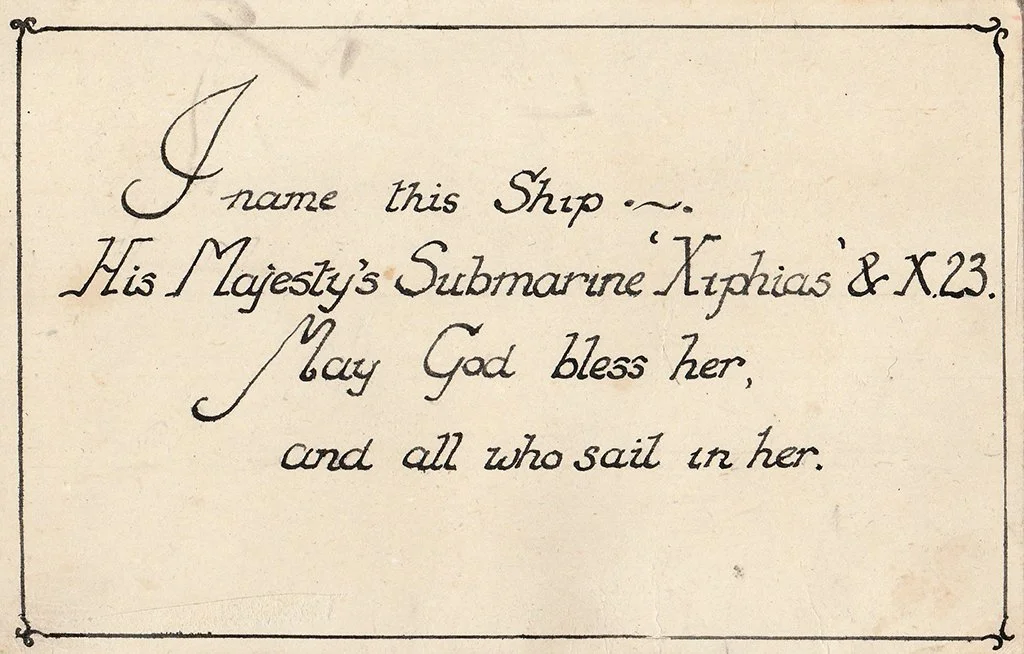 I name this Ship ·~.
His Majesty's Submarine 'Xiphias' & X.23.
May God bless her,
and all who sail in her.